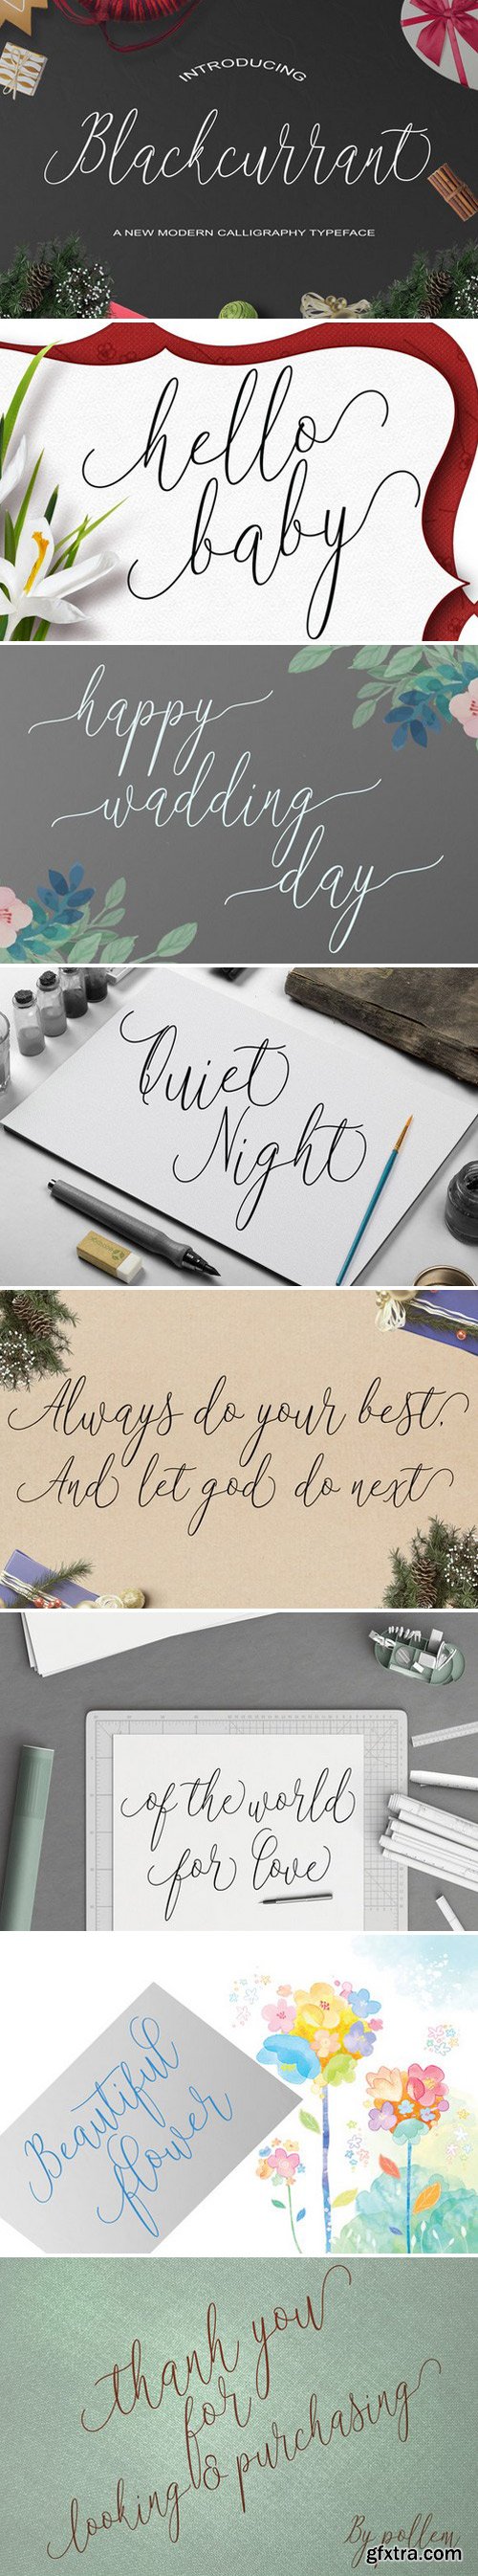 INTRODUCING
Blackcurrant
A NEW MODERN CALLIGRAPHY TYPEFACE
hello
baby
happy
wadding
day
Quiet
Night
Always do your best.
And let god do next
of the world
for love
Beautiful
flower
thank you
for
looking & purchasing
By pollem
gfxtra.com